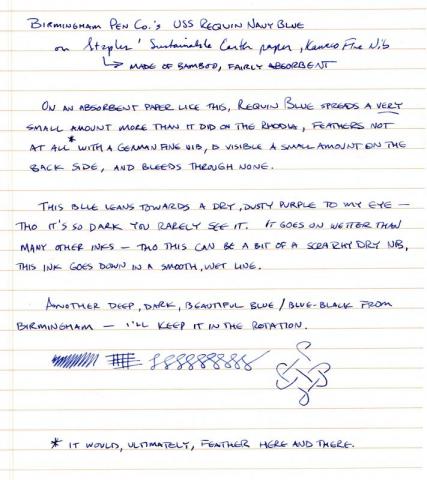 Birmingham Pen Co.'s USS Requin Navy Blue
on Staples' Sustainable Earth paper, Kaweco Fine Nib
↳ made of bamboo, fairly absorbent
On an absorbent paper like this, Requin Blue spreads a very
small amount more than it did on the Rhodia, feathers not
at all* with a German fine nib, is visible a small amount on the
back side, and bleeds through none.
This blue leans towards a dry, dusty purple to my eye —
tho it's so dark you rarely see it. It goes on wetter than
many other inks — tho this can be a bit of a scratchy dry nib,
this ink goes down in a smooth, wet line.
Another deep, dark, beautiful blue / blue-black from
Birmingham — I'll keep it in the rotation.
* it would, ultimately, feather here and there.